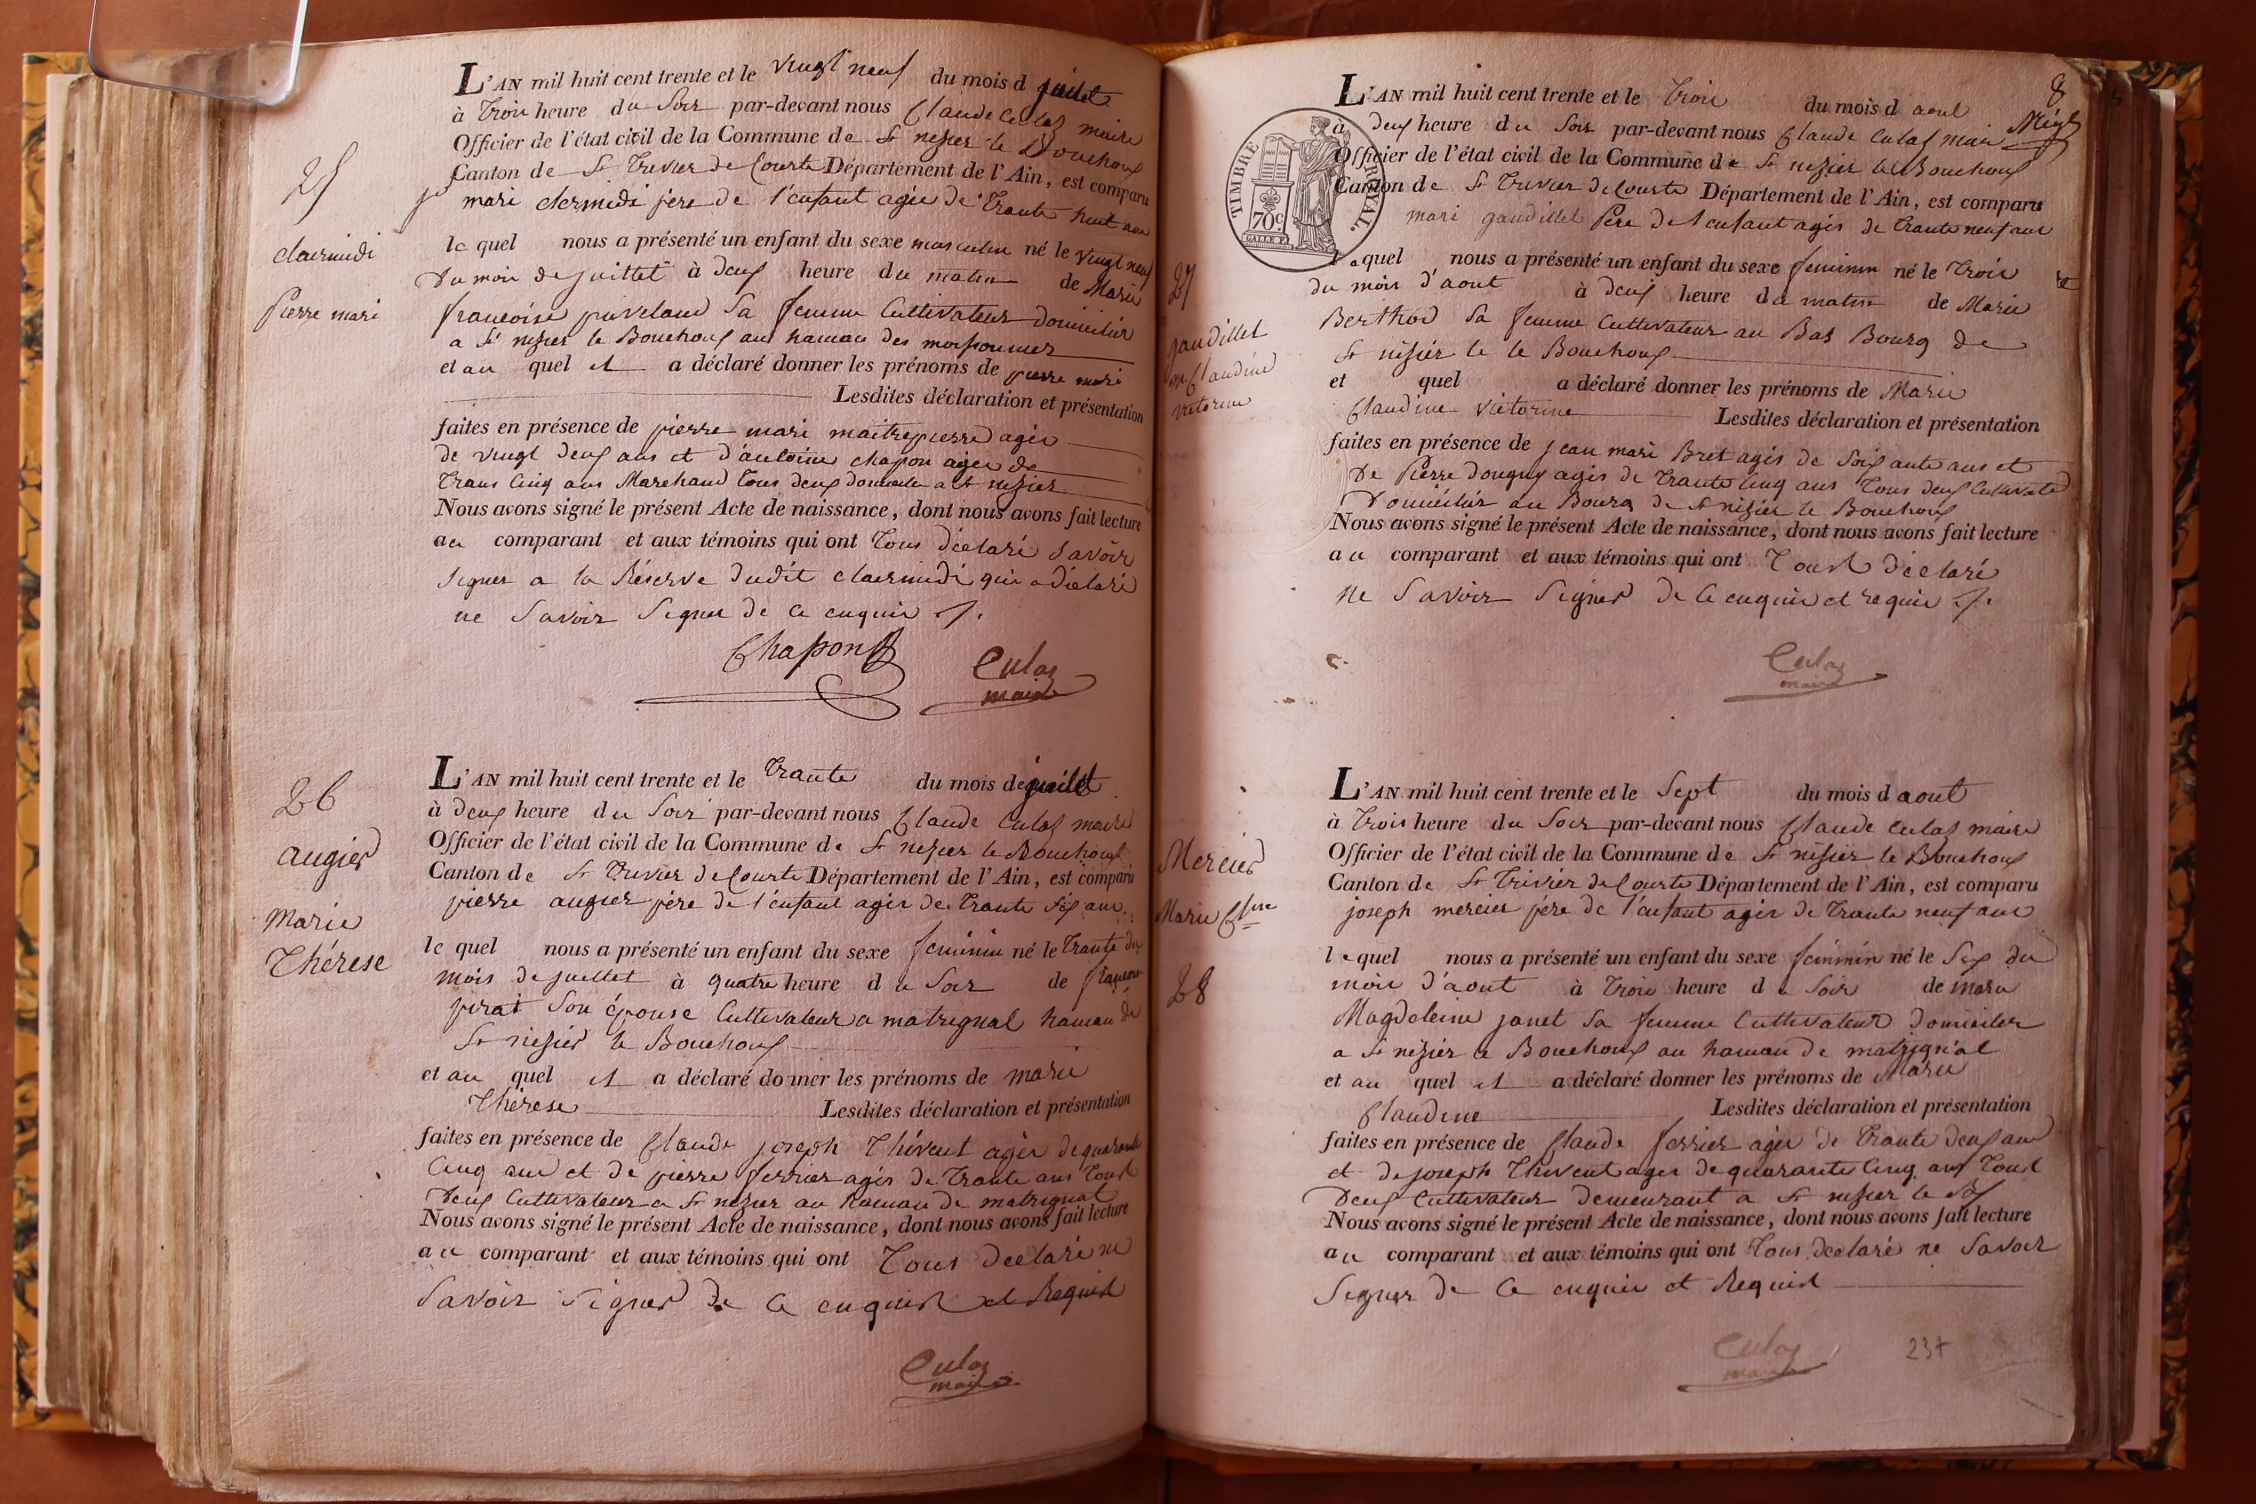 L'AN mil huit cent trente et le vingt neuf du mois d juilet
à Trois heure du Soir par-devant nous Claude Culas maire
Officier de l'état civil de la Commune de St nizier le Bouchoux
Canton de St Trivier de Courte Département de l'Ain, est comparu
mari clermidi père de l'enfant agée de Trante huit ans
le quel nous a présenté un enfant du sexe masculin né le vingt neuf
Du mois de juillet à deux heure du matin de Marie
francoise puveland Sa femme Cultivateur domicilier
a St nizier le Bouchoux au hamau des moissonnier
et au quel il a déclaré donner les prénoms de pierre mari
Lesdites déclaration et présentation
faites en présence de pierre mari maitrepierre agée
de vingt deux ans et d'antoine chapon agée de
Trans Cinq ans Marchand Tous deux domicile a St nizier
Nous avons signé le présent Acte de naissance, dont nous avons fait lecture
au comparant et aux témoins qui ont Tous déclaré Savoir
Signer a la Réserve dudit clermidi qui a déclaré
ne Savoir Signer de ce enquis
Chapon
Culas
maire
25
clermidi
Pierre mari
L'AN mil huit cent trente et le Trante du mois de juilet
à deux heure du Soir par-devant nous Claude Culas maire
Officier de l'état civil de la Commune de St nizier le Bouchoux
Canton de St Trivier de Courte Département de l'Ain, est comparu
pierre augier père de l'enfant agée de Trante Six ans
le quel nous a présenté un enfant du sexe feminin né le Trante du
mois de juillet à quatre heure du Soir de
pirat Son épouse Cultivateur a matrignal hamau de
St nizier le Bouchoux
et au quel il a déclaré donner les prénoms de marie
Thérese
Lesdites déclaration et présentation
faites en présence de Claude joseph Thévent agée de quarante
Cinq ans et de pierre ferrier agée de Trante ans Tous
Deux Cultivateur a St nizier au hamau de matrignal
Nous avons signé le présent Acte de naissance, dont nous avons fait lecture
au comparant et aux témoins qui ont Tous déclaré ne
Savoir Signer de ce enquis et Requis
Culas
maire
26
augier
Marie
Thérese
8
L'AN mil huit cent trente et le Trois du mois d aout
à deux heure du Soir par-devant nous Claude Culas maire
Officier de l'état civil de la Commune de St nizier le Bouchoux
Canton de St Trivier de Courte Département de l'Ain, est comparu
mari gaudillet Père de l'enfant agée de Trante neuf ans
le quel nous a présenté un enfant du sexe feminin né le Trois
du mois d'aout à deux heure du matin de Marie
Berthod Sa femme Cultivateur au Bas Bourg de
St nizier le le Bouchoux
et quel a déclaré donner les prénoms de Marie
Claudine victorine
Lesdites déclaration et présentation
faites en présence de jean mari Bret agée de Soixante ans et
De Pierre Donguy agée de Trante Cinq ans Tous deux Cultivateur
Domicilier au Bourg de St nizier le Bouchoux
Nous avons signé le présent Acte de naissance, dont nous avons fait lecture
au comparant et aux témoins qui ont Tous déclaré
ne Savoir Signer de ce enquis et requis
Culas
maire
TIMBRE ROYAL.
70c
27
gaudillet
Claudine
victorine
L'AN mil huit cent trente et le Sept du mois d aout
à Trois heure du Soir par-devant nous Claude Culas maire
Officier de l'état civil de la Commune de St nizier le Bouchoux
Canton de St Trivier de Courte Département de l'Ain, est comparu
joseph mercier père de l'enfant agée de Trante neuf ans
le quel nous a présenté un enfant du sexe feminin né le Six du
mois d'aout à Trois heure du Soir de marie
Magdeleine janet Sa femme Cultivateur Domicilier
a St nizier le Bouchoux au hamau de matrignal
et au quel il a déclaré donner les prénoms de Marie
Claudine
Lesdites déclaration et présentation
faites en présence de Claude ferrier agée de Trante deux ans
et de joseph Thivent agée de quarante Cinq ans Tous
Deux Cultivateur demeurant a St nizier le Bx
Nous avons signé le présent Acte de naissance, dont nous avons fait lecture
au comparant et aux témoins qui ont Tous declaré ne Savoir
Signer de ce enquis et Requis
Culas
maire
Mercier
Marie Cdine
28